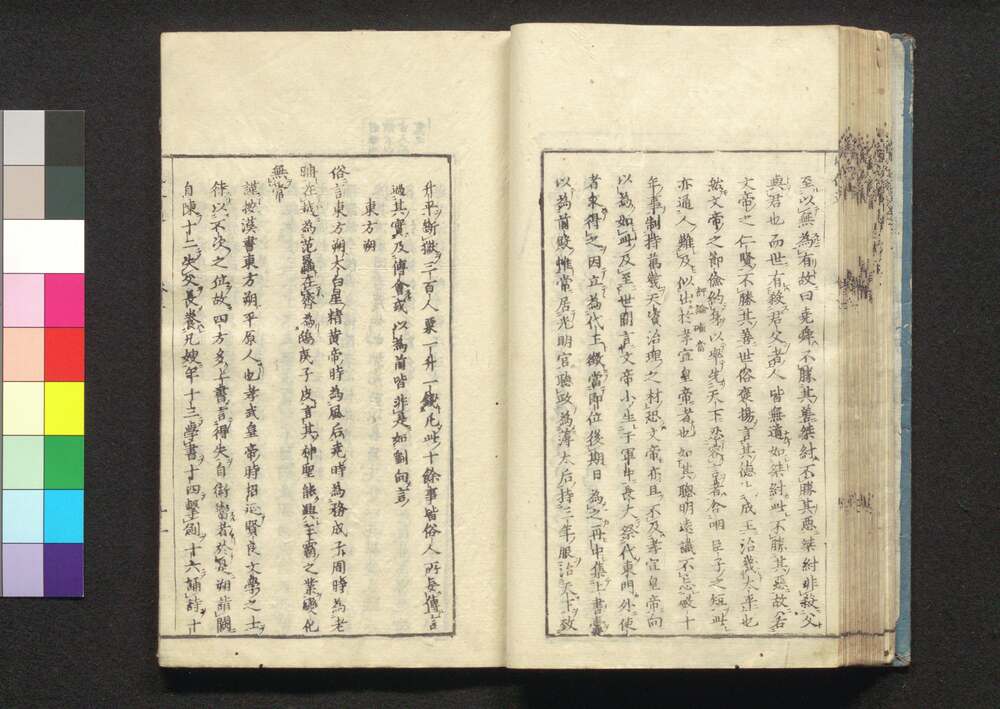 至以無為有故曰堯舜不勝其善桀紂不勝其惡桀紂非殺父
與君也而世有殺君父者人皆無道如桀紂此不勝其惡故若
文帝之仁賢不勝其善世俗褒揚言其德比成王治幾太平也
然文帝之節儉約身以率先天下忍容言者含咽臣子之短此
評論確當
亦通人難及似出於孝宣皇帝者也如其聰明遠識不忘數十
年事制持萬幾天資治理之材恐文帝亦且不及孝宣皇帝向
以為如此及至世間言文帝小生于軍中長大祭代東門外使
者求得之因立為代王徵當即位後期日為之再中集上書囊
以為前殿帷常居光明宮聽政為薄太后持三年服治天下致
升平斷獄三百人粟一升一錢凡此十餘事皆俗人所妄傳言
過其實及傅會或以為前皆非是如劉向言
東方朔
俗言東方朔太白星精黃帝時為風后堯時為務成子周時為老
聃在越為范蠡在齊為鴟夷子皮言其神聖能興王霸之業變化
無常
謹按漢書東方朔平原人也孝武皇帝時招延賢良文學之士
待以不次之位故四方多上書言得失自衒鬻者於是朔詣闕
自陳十二失父長養兄嫂年十三學書十四擊劍十六誦詩十